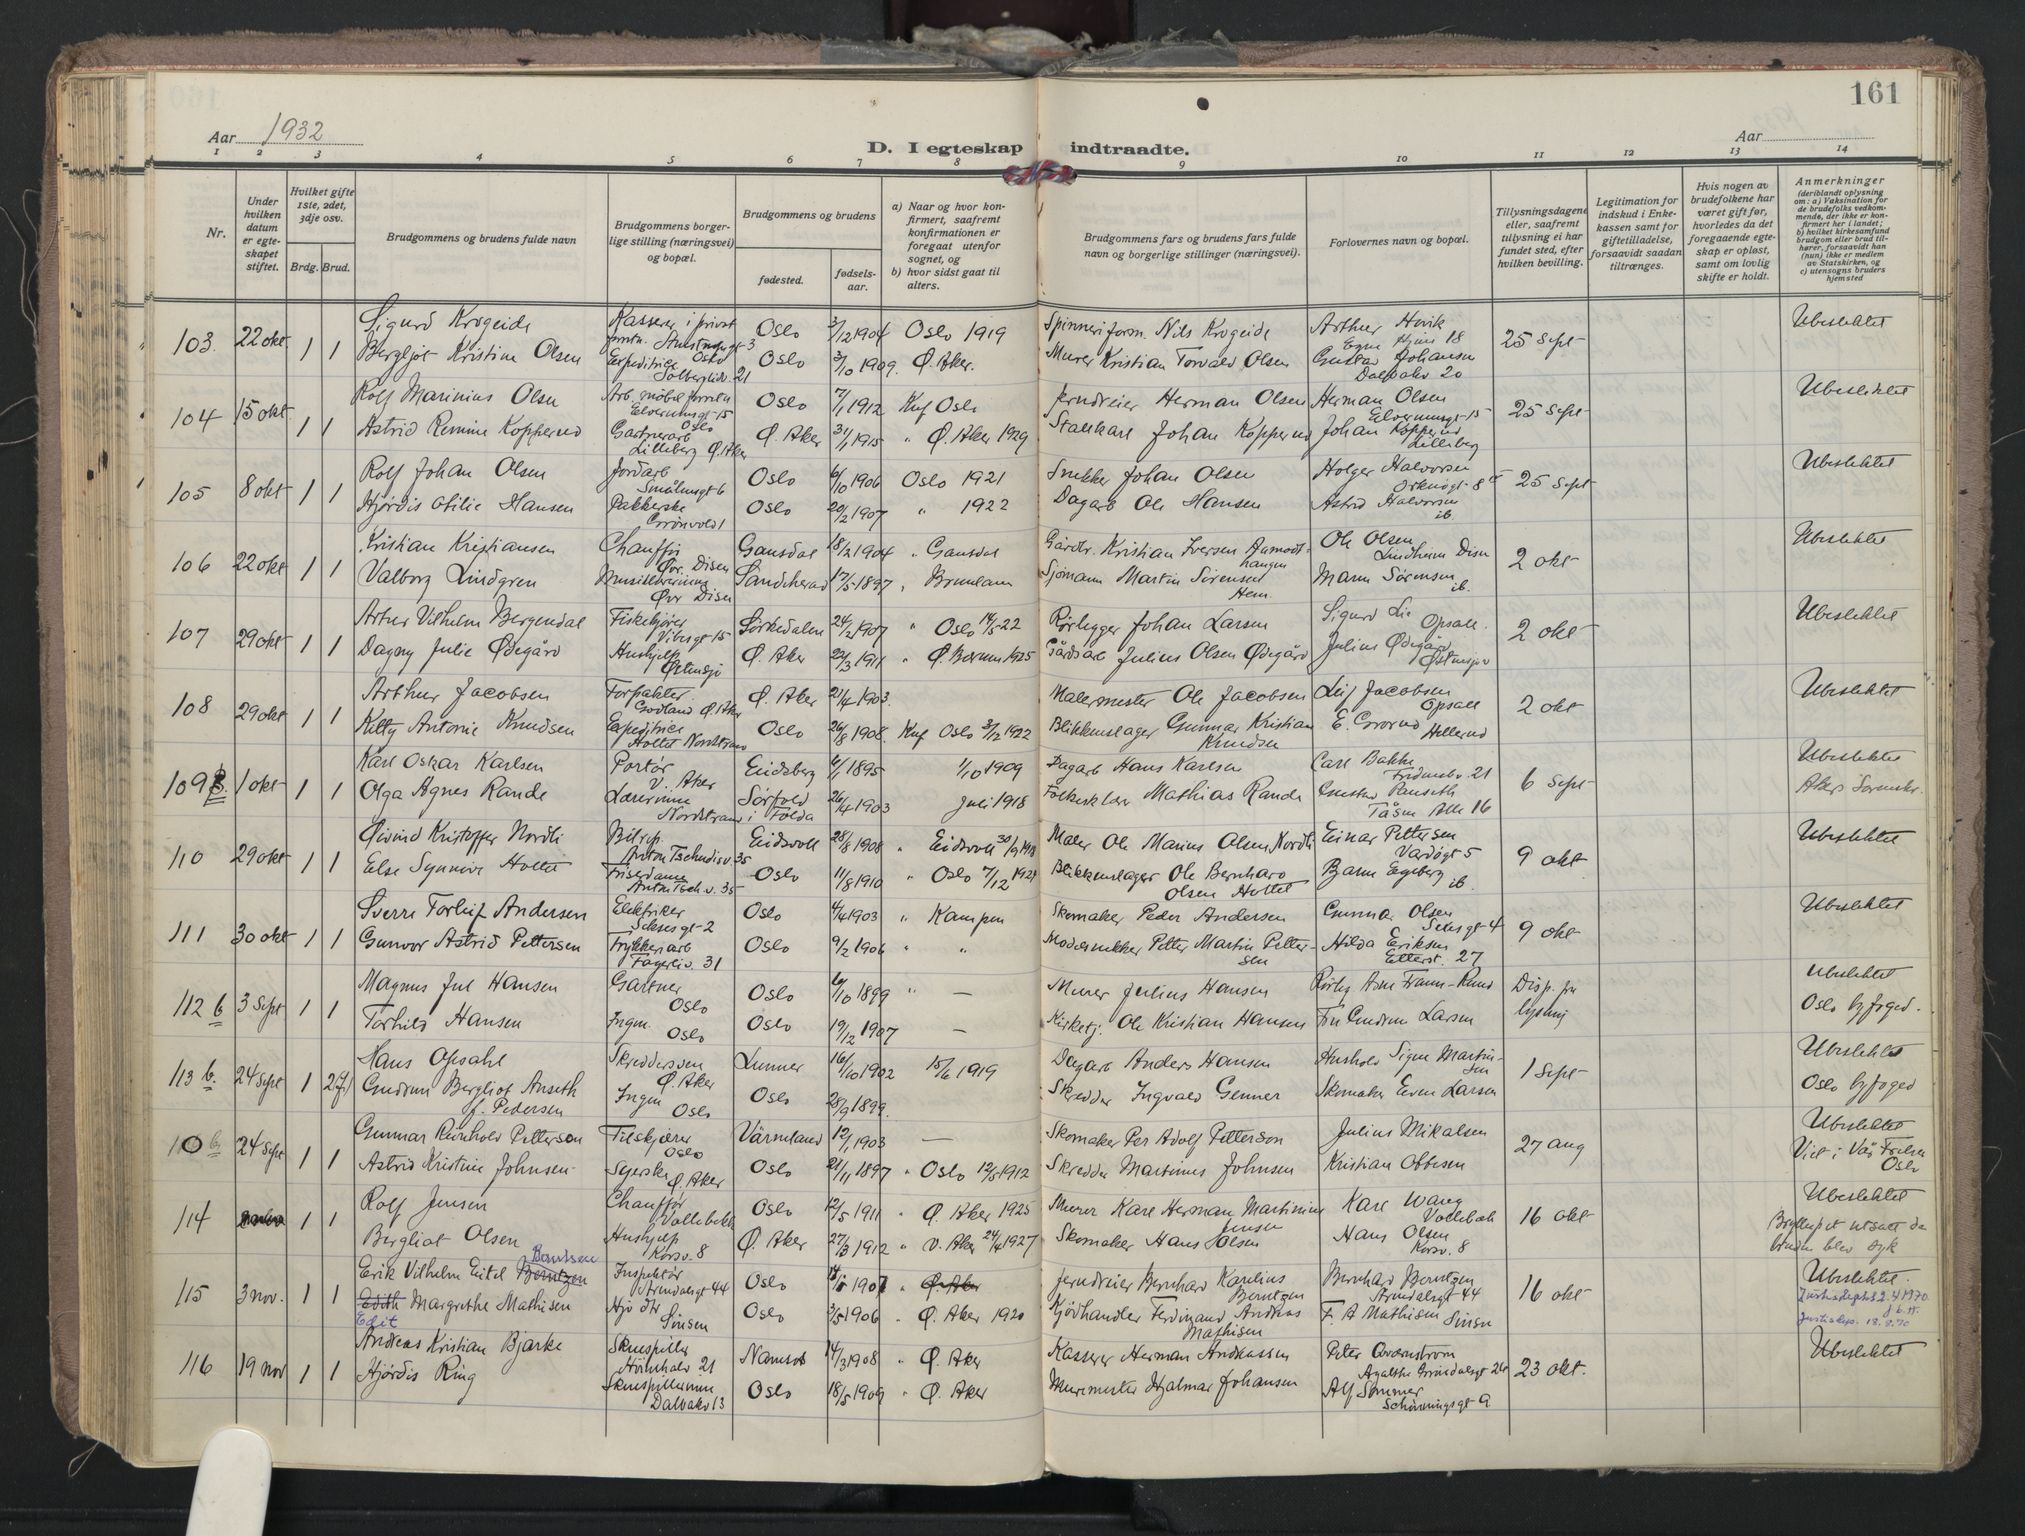 161
Aar 1932
Aar
D. I egteskap indtraadte.
1 2 3 4 5 6 7 8 9 10 11 12 13 14
Nr.
Under hvilken datum er egteskapet stiftet.
Hvilket gifte 1ste, 2det, 3dje osv.
Brdg. Brud.
Brudgommens og brudens fulde navn
Brudgommens borgerlige stilling (næringsvei) og bopæl.
Brudgommens og brudens
fødested.
fødselsaar.
a) Naar og hvor konfirmert, saafremt konfirmationen er foregaat utenfor sognet, og
b) hvor sidst gaat til alters.
Brudgommens fars og brudens fars fulde navn og borgerlige stillinger (næringsvei).
Forlovernes navn og bopæl.
Tillysningsdagene eller, saafremt tillysning ei har fundet sted, efter hvilken bevilling.
Legitimation for indskud i Enkekassen samt for giftetilladelse, forsaavidt saadan tiltrænges.
Hvis nogen av brudefolkene har været gift før, hvorledes da det foregaaende egteskap er opløst, samt om lovlig skifte er holdt.
Anmerkninger
(deriblandt oplysning om: a) Vaksination for de brudefolks vedkommende, der ikke er konfirmert her i landet; b) hvilket kirkesamfund brudgom eller brud tilhører, forsaavidt han (hun) ikke er medlem av Statskirken, og c) utensogns bruders hjemsted
103 22 okt 1 1
Sigurd Krogeide Kasserer i privat Oslo 3/12 1904 Oslo 1919 Spinneriform. Nils Krogeide Arthur Hovik 25 sept Ubeslektet
Bergljot Kristine Olsen Expeditrice Oslo 3/10 1909. Ø. Aker. Murer Kristian Torvald Olsen Gustav Johansen
Dalbakv 20
104 15 okt 1 1
Rolf Marinius Olsen Oslo 7/1 1912 Kuf Oslo Jerndreier Herman Olsen Herman Olsen 25 sept Ubeslektet
Elverumsgt 15
Astrid Remine Kopperud Gartnerarb Ø. Aker 31/1 1915 " Ø. Aker 1929 Stallkarl Johan Kopperud Johan Kopperud
Lilleberg Ø. Aker Lilleberg
105 8 okt 1 1
Rolf Johan Olsen Jordarb Oslo 6/10 1906 Oslo 1921 Snekker Johan Olsen Holger Halvorsen 25 sept Ubeslektet
Smålensgt 6
Hjørdis Otilie Hansen Pakkerske Oslo 20/2 1907 " 1922 Dagarb Ole Hansen Astrid Halvorsen
Grønvold 1 ib.
106 22 okt 1 1
Kristian Kristiansen Chauffør Gansdal 18/2 1904 " Gansdal Gårdbr. Kristian Iversen Ole Olsen 2 okt Ubeslektet
Øvr. Disen Lindheim Disen
Valborg Lindgren Sandeherad 17/5 1897 " Brunlanes Sjømann Martin Sørensen Mann Sørensen
Øvr Disen Hem. ib.
107 29 okt 1 1
Artur Vilhelm Bergendal Fiskehjører Sørkedalen 24/2 1907 " Oslo 14/5 22 Rørlegger Johan Larsen Sigurd Lie 2 okt Ubeslektet
Vibesgt 15 Opsall.
Dagny Julie Ødegård Hushjelp Ø. Aker 22/3 1911 " Ø. Bærum 1925 Gårdsarb Julius Olsen Ødegård Julius Ødegård
Østensjø Østensjøv
108 29 okt 1 1
Arthur Jacobsen Forpakter Ø. Aker 21/4 1903. Malermester Ole Jacobsen Leif Jacobsen 2 okt Ubeslektet
Godland Ø. Aker Opsall
Kitty Antonie Knudsen Expeditrice Oslo 26/8 1908. Kuf Oslo 3/12 1922 Blikkenslager Gunnar Kristian E. Grorud Hellerud
Holtet Nordstrand Knudsen
109 b. 1 okt 1 1
Karl Oskar Karlsen Portør Eidsberg 6/1 1895 1/10 1909 Dagarb Hans Karlsen Carl Bakke 6 sept Ubeslektet
V. Aker Fridensbv. 21
Olga Agnes Rande Lærerinne Sørfold 26/4 1903 Juli 1918 Folkeskolelær Mathias Rande Gustav Ranseth
Nordstrand i Folda Tåsen Alle 16
110 29 okt 1 1
Øivind Kristoffer Nordli Bilrep. Eidsvoll 28/8 1908 " Eidsvoll 30/9 Maler Ole Marius Olsen Nordli Einar Pettersen 9 okt Ubeslektet
Anton Tschudisv. 35 Vardøgt 5
Else Synnøve Holtet Friserdame Oslo 11/8 1910 " Oslo 7/12 1924 Blikkenslager Ole Bernhard Egeberg
Anton Tsch v. 35 Olsen Holtet ib.
111 30 okt 1 1
Sverre Torleif Andersen Elektriker Oslo 4/4 1903 " Kampen Skomaker Peder Andersen Gunnar Olsen 9 okt Ubeslektet
Gunvor Astrid Pettersen Trykkeriarb Oslo 9/2 1906 " " Modelsnekker Petter Martin Pettersen Hilda Eriksen
Fagerliv. 31 Etterst. 27
112 b 3 sept 1 1
Magnus Jul Hansen Gartner Oslo 6/10 1899 " — Murer Julius Hansen Disp. fra Ubeslektet
Oslo lysning Oslo byfoged.
Torhild Hansen Ingen Oslo 19/12 1907 — Kirketj. Ole Kristian Hansen Fru Gudrun Larsen
Oslo
113 b. 24 sept 1 2(f)
Hans Opsahl Skreddersven Lunner 16/10 1902 15/6 1919 Dagarb Anders Hansen Hushold Signe Martinsen 1 sept Ubeslektet
Ø. Aker Oslo byfoged
Gudrun Bergliot Anseth Ingen Oslo 28/9 1899. Skredder Ingvald Genner Skomaker Even Larsen
f. Pedersen Oslo
110 b 24 sept 1 1
Gunnar Reinhold Petterson Tilskjærer Värmland 12/1 1903 — Skomaker Per Adolf Petterson Julius Mikalsen 27 aug Ubeslektet
Oslo Viet i Vår Frelser Oslo
Astrid Kristine Johnsen Syerske Oslo 21/11 1897 " Oslo 12/5 1912 Skredder Martinus Johnsen Kristian Obbesen
Ø. Aker
114 1 1
Rolf Jensen Chauffør Oslo 12/5 1911 " Ø. Aker 1925 Murer Karl Herman Martinius Jensen Karl Wang 16 okt Ubeslektet
Vollebekk Vollebæk Bryllupet utsatt da
Bergliot Olsen Hushjelp Ø. Aker 27/3 1912 " V. Aker 24/4 1927 Skomaker Hans Olsen Hans Olsen bruden blev syk
Korsv. 8 Korsv. 8
115 3 nov. 1 1
Berntsen
Erik Vilhelm Eitel Berntzen Inspektør Oslo 1907 " Ø. Aker Jerndreier Bernhard Karelius Bernhard Berntzen 16 okt Ubeslektet.
Arendalsgt 44 Berntzen Arendalsgt 44 Justisdept 2.4 1970
Edith Margrethe Mathisen Oslo 3/5 1906 " Ø. Aker 1920 Kjødhandler Ferdinand Andreas F. A Mathisen Sinsen
Edit Sinsen Mathisen Justisdep. 18.8.70
116 19 nov 1 1
Andreas Kristian Bjarke Skuespiller Namsos 14/3 1908 " Ø. Aker Kasserer Herman Andreassen Peter Qværnstrøm 23 okt. Ubeslektet
Agathe Grøndalsgt 24
Hjørdis Ring Skuespillerinne Oslo 18/5 1909 " Ø. Aker Murmester Hjalmar Johansen Alf Sommer
Dalbakv 13 Schønningsgt 9